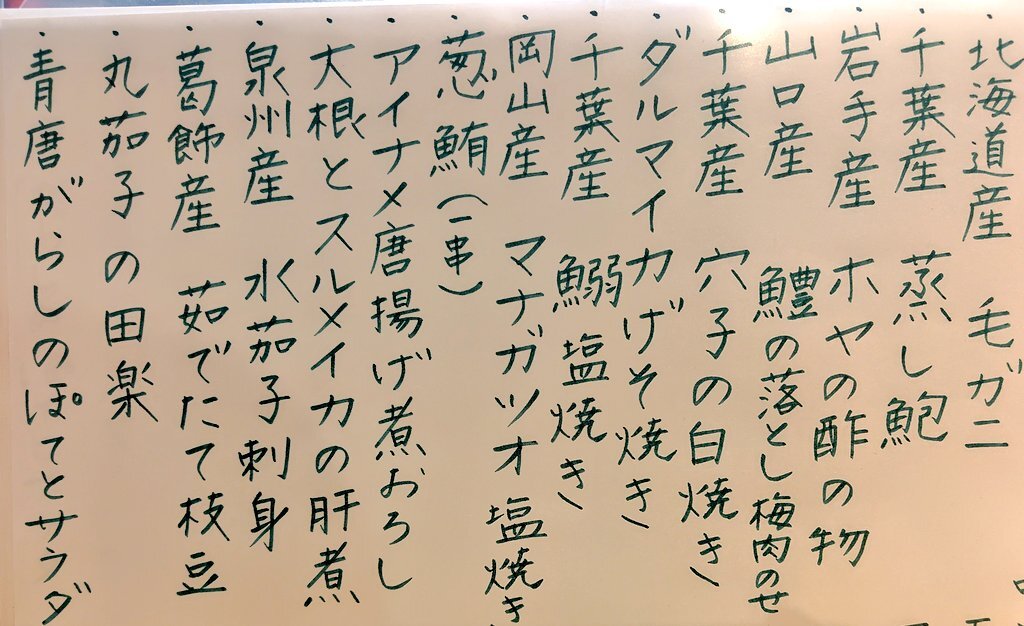 ・北海道産 毛ガニ
・千葉産 蒸し鮑
・岩手産 ホヤの酢の物
・山口産 鱧の落とし梅肉のせ
・千葉産 穴子の白焼き
・ダルマイカげそ焼き
・千葉産 鰯塩焼き
・岡山産 マナガツオ塩焼き
・葱鮪(一串)
・アイナメ唐揚げ煮おろし
・大根とスルメイカの肝煮
・泉州産 水茄子刺身
・葛飾産 茹でたて枝豆
・丸茄子の田楽
・青唐がらしのぽてとサラダ